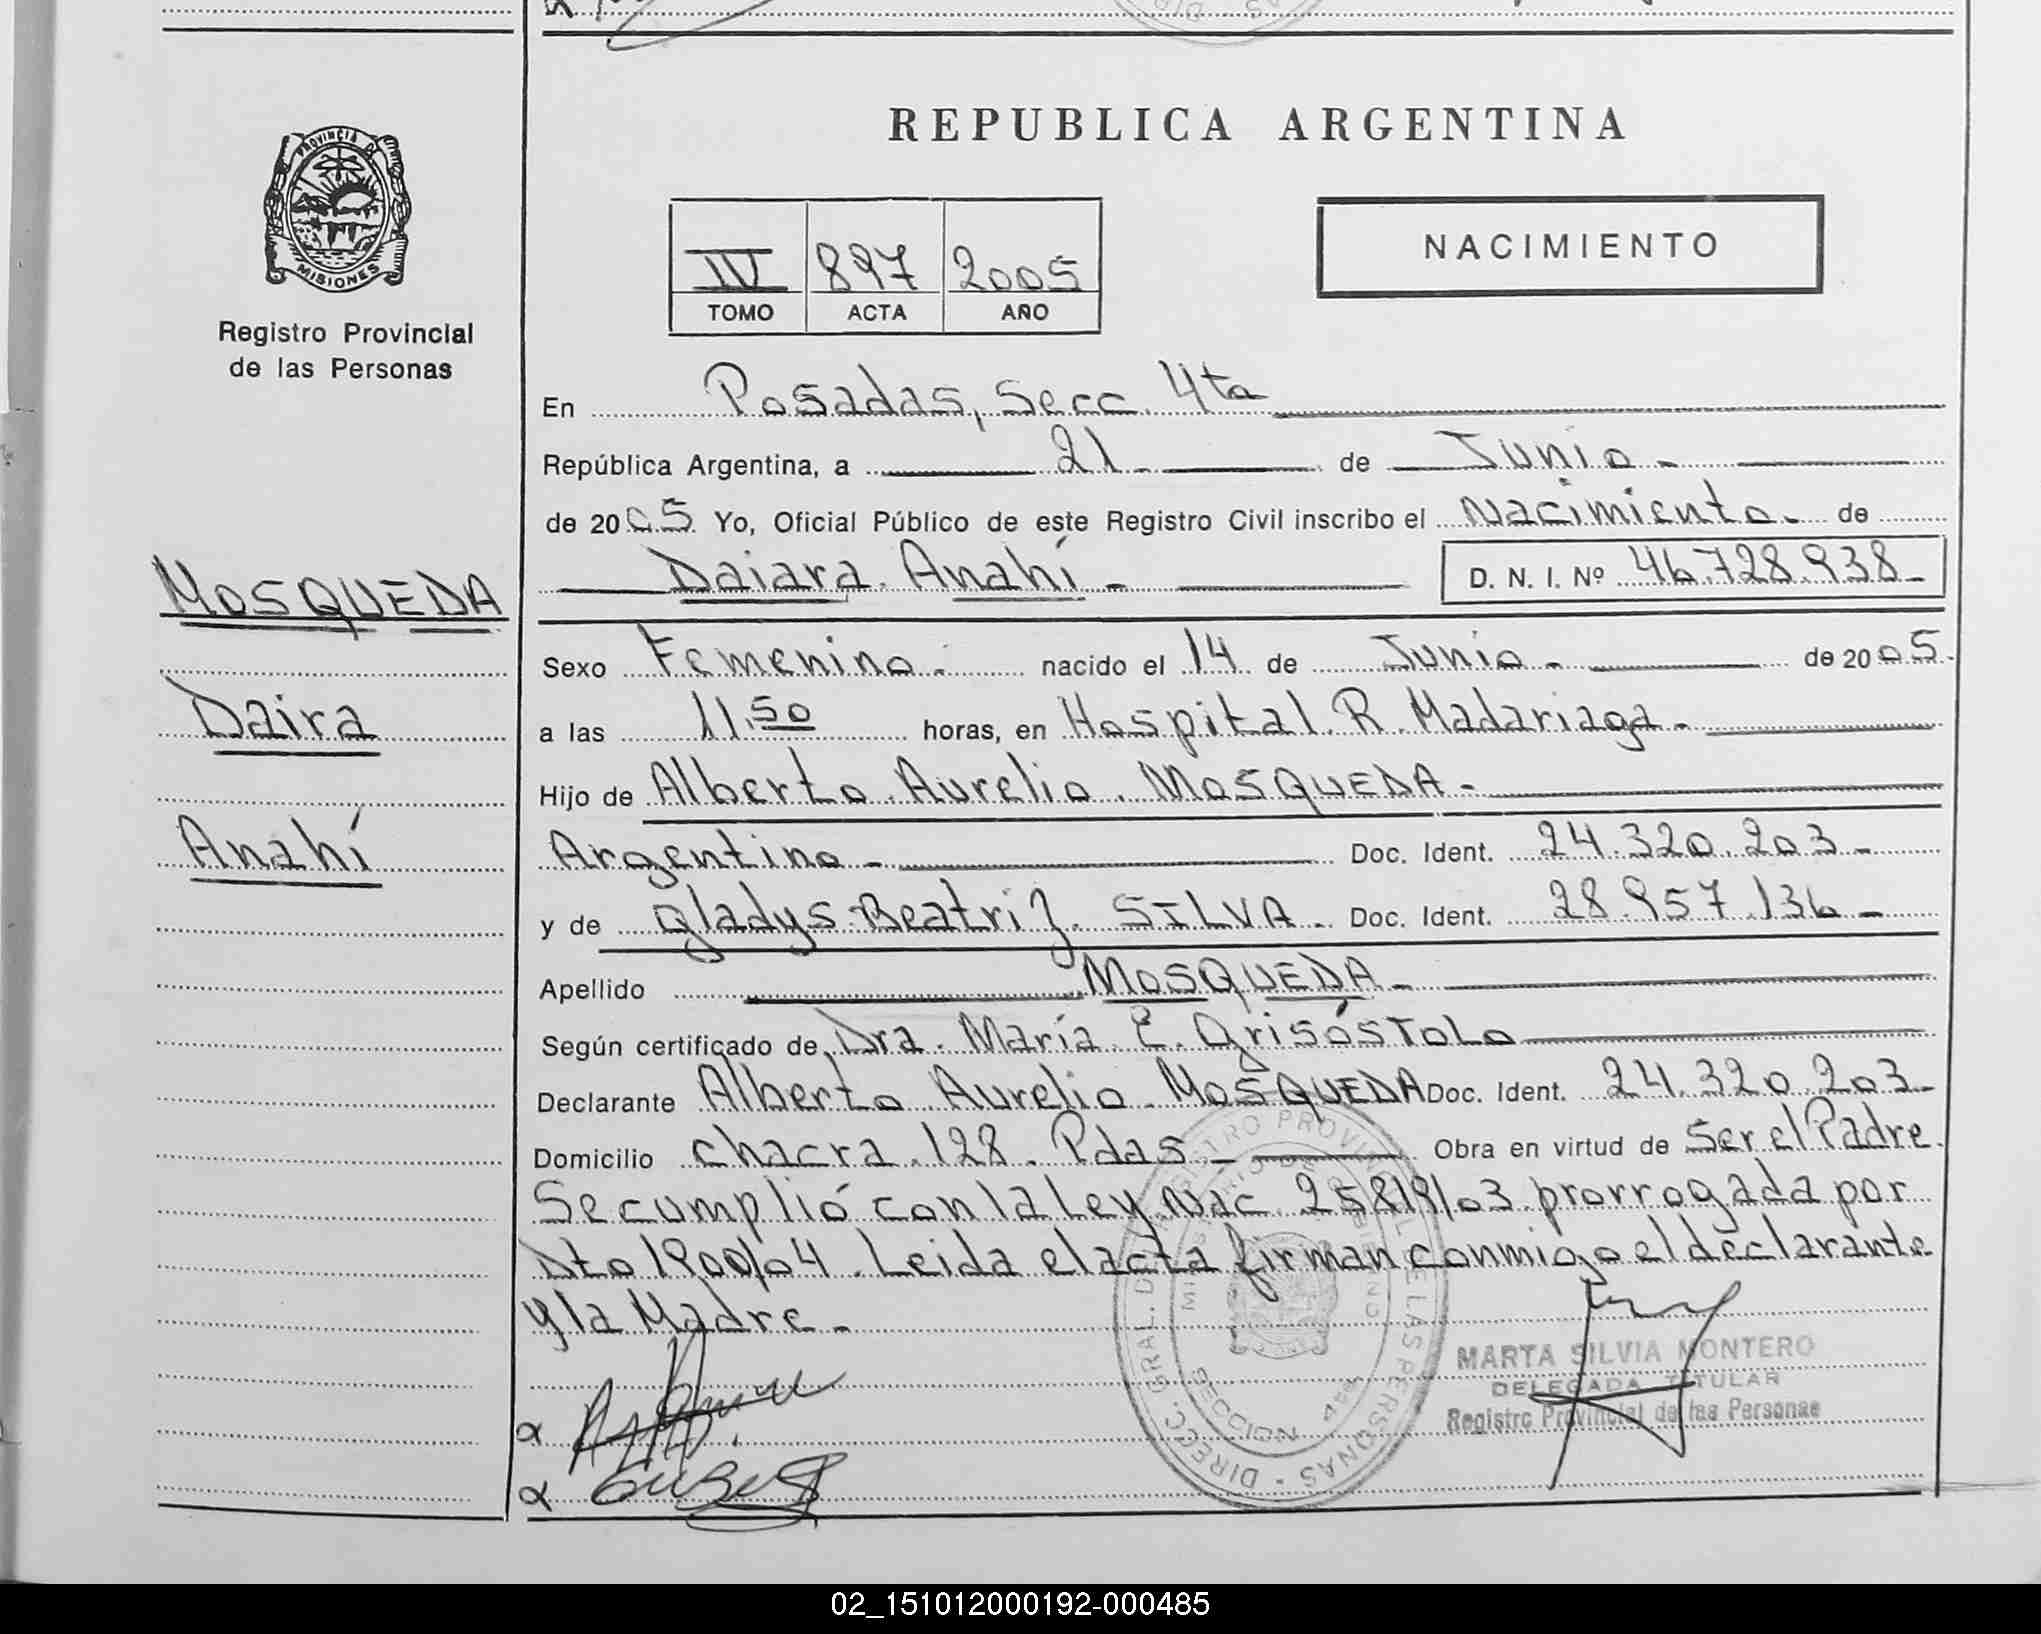 PROVINCIA DE
MISIONES
Registro Provincial
de las Personas
MOSQUEDA
Daira
Anahí
REPUBLICA ARGENTINA
IV 897 2005
TOMO ACTA AÑO
NACIMIENTO
En Posadas, Secc. 4ta
República Argentina, a 21 de Junio
de 2005 Yo, Oficial Público de este Registro Civil inscribo el Nacimiento de
Daiara Anahí D. N. I. Nº 46.728.938
Sexo Femenino nacido el 14 de Junio de 2005
a las 11.50 horas, en Hospital R. Madariaga
Hijo de Alberto Aurelio MOSQUEDA
Argentino Doc. Ident. 24.320.203
y de Gladys Beatriz SILVA Doc. Ident. 28.957.136
Apellido MOSQUEDA
Según certificado de Dra. María E. Grisóstolo
Declarante Alberto Aurelio MOSQUEDA Doc. Ident. 24.320.203
Domicilio chacra 128. Pdas Obra en virtud de Ser el Padre
Se cumplió con la Ley Nac. 25819/03 prorrogada por
Dto 1900/04. Leida el acta firman conmigo el declarante
y la Madre
MARTA SILVIA MONTERO
DELEGADA TITULAR
Registro Provincial de las Personas
SECCION 4ta
02_151012000192-000485